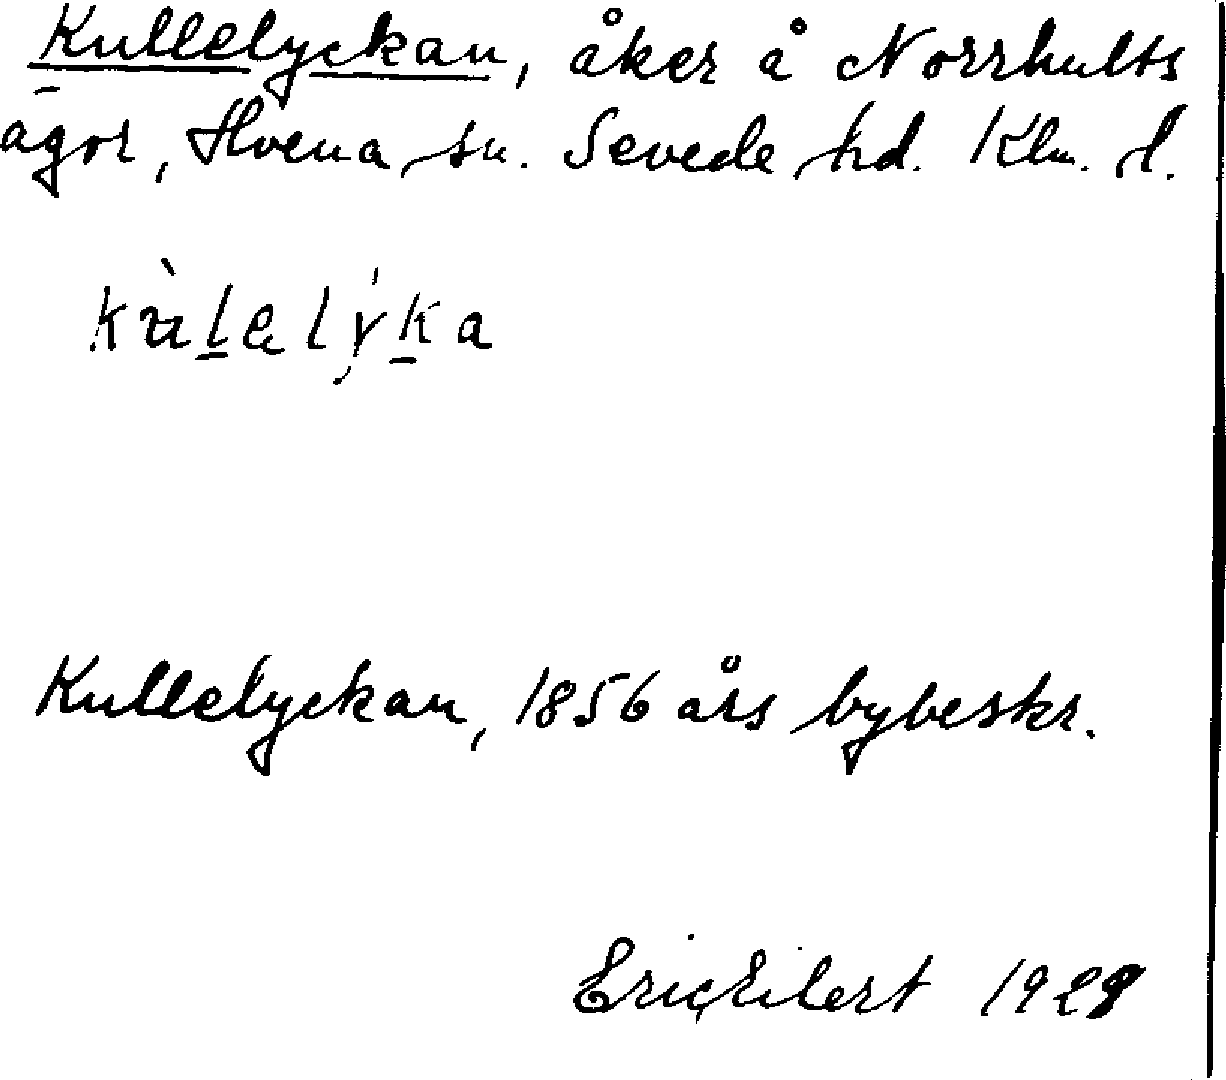 Kullelyckan, åker å Norrhults
ägor, Hvena sn. Sevede hd. Klm. l.
kùlelýka
Kullelyckan, 1856 års bybeskr.
Eric Eilert 1929